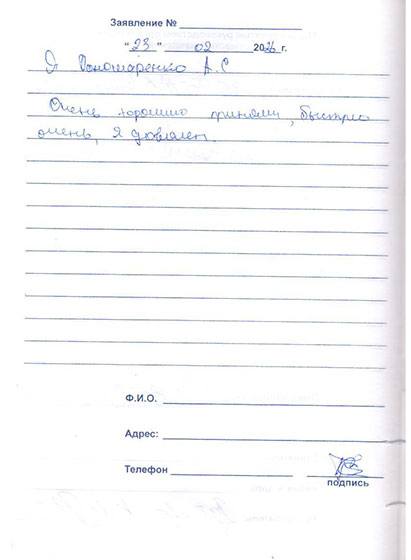 Заявление № 
"23" 02 2026 г.
Я Пономаренко А.С
Очень хорошо приняли, быстро
очень, Я доволен.
Ф.И.О.
Адрес:
Телефон
подпись